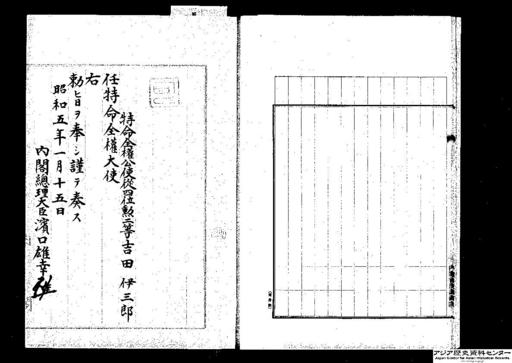 特命全權公使從四位勲二等吉田伊三郎
任特命全權大使
右
勅旨ヲ奉シ謹テ奏ス
昭和五年一月十五日
内閣總理大臣濱口雄幸
アジア歴史資料センター
Japan Center for Asian Historical Records